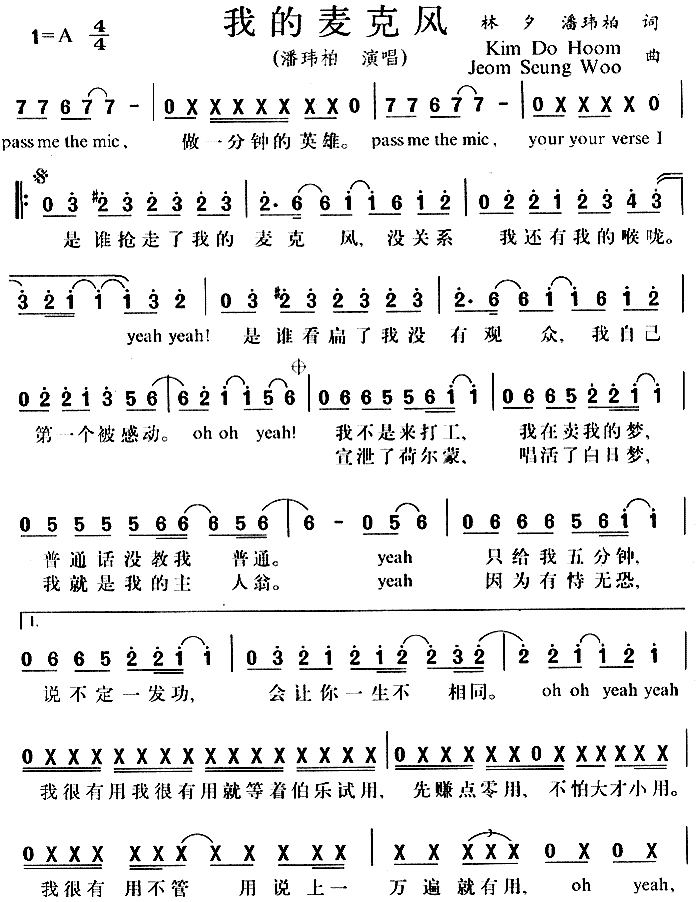 1=A 4/4 我的麦克风 林夕 潘玮柏 词
(潘玮柏 演唱) Kim Do Hoom
Jeom Seung Woo 曲
7 7 6 7 7 - | 0 X X X X X X X 0 | 7 7 6 7 7 - | 0 X X X X 0
pass me the mic, 做一分钟的英雄。 pass me the mic, your your verse I
0 3 #2 3 2 3 2 3 | 2· 6 6 1 1 6 1 2 | 0 2 2 1 2 3 4 3
是谁抢走了我的 麦克 风, 没关系 我还有我的喉咙。
3 2 1 1 1 3 2 | 0 3 #2 3 2 3 2 3 | 2· 6 6 1 1 6 1 2
yeah yeah! 是谁看扁了我没 有观 众, 我自己
0 2 2 1 3 5 6 | 6 2 1 1 5 6 | 0 6 6 5 5 6 1 1 | 0 6 6 5 2 2 1 1
第一个被感动。 oh oh yeah! 我不是来打工, 我在卖我的梦,
宣泄了荷尔蒙, 唱活了白日梦,
0 5 5 5 5 6 6 5 6 | 6 - 0 5 6 | 0 6 6 6 5 6 1 1
普通话没教我 普通。 yeah 只给我五分钟,
我就是我的主 人翁。 yeah 因为有恃无恐,
1.
0 6 6 5 2 2 1 1 | 0 3 2 1 2 1 2 2 3 2 | 2 2 1 1 2 1
说不定一发功, 会让你一生不 相同。 oh oh yeah yeah
0 X X X X X X X X X X X X X X X | X X X X X 0 X X X X X X X
我很有用我很有用就等着伯乐试用, 先赚点零用, 不怕大才小用。
0 X X X X X X X X X X X | X X X X X X 3 X 0 X X
我很有 用不管 用说上一 万遍就有用, oh yeah,